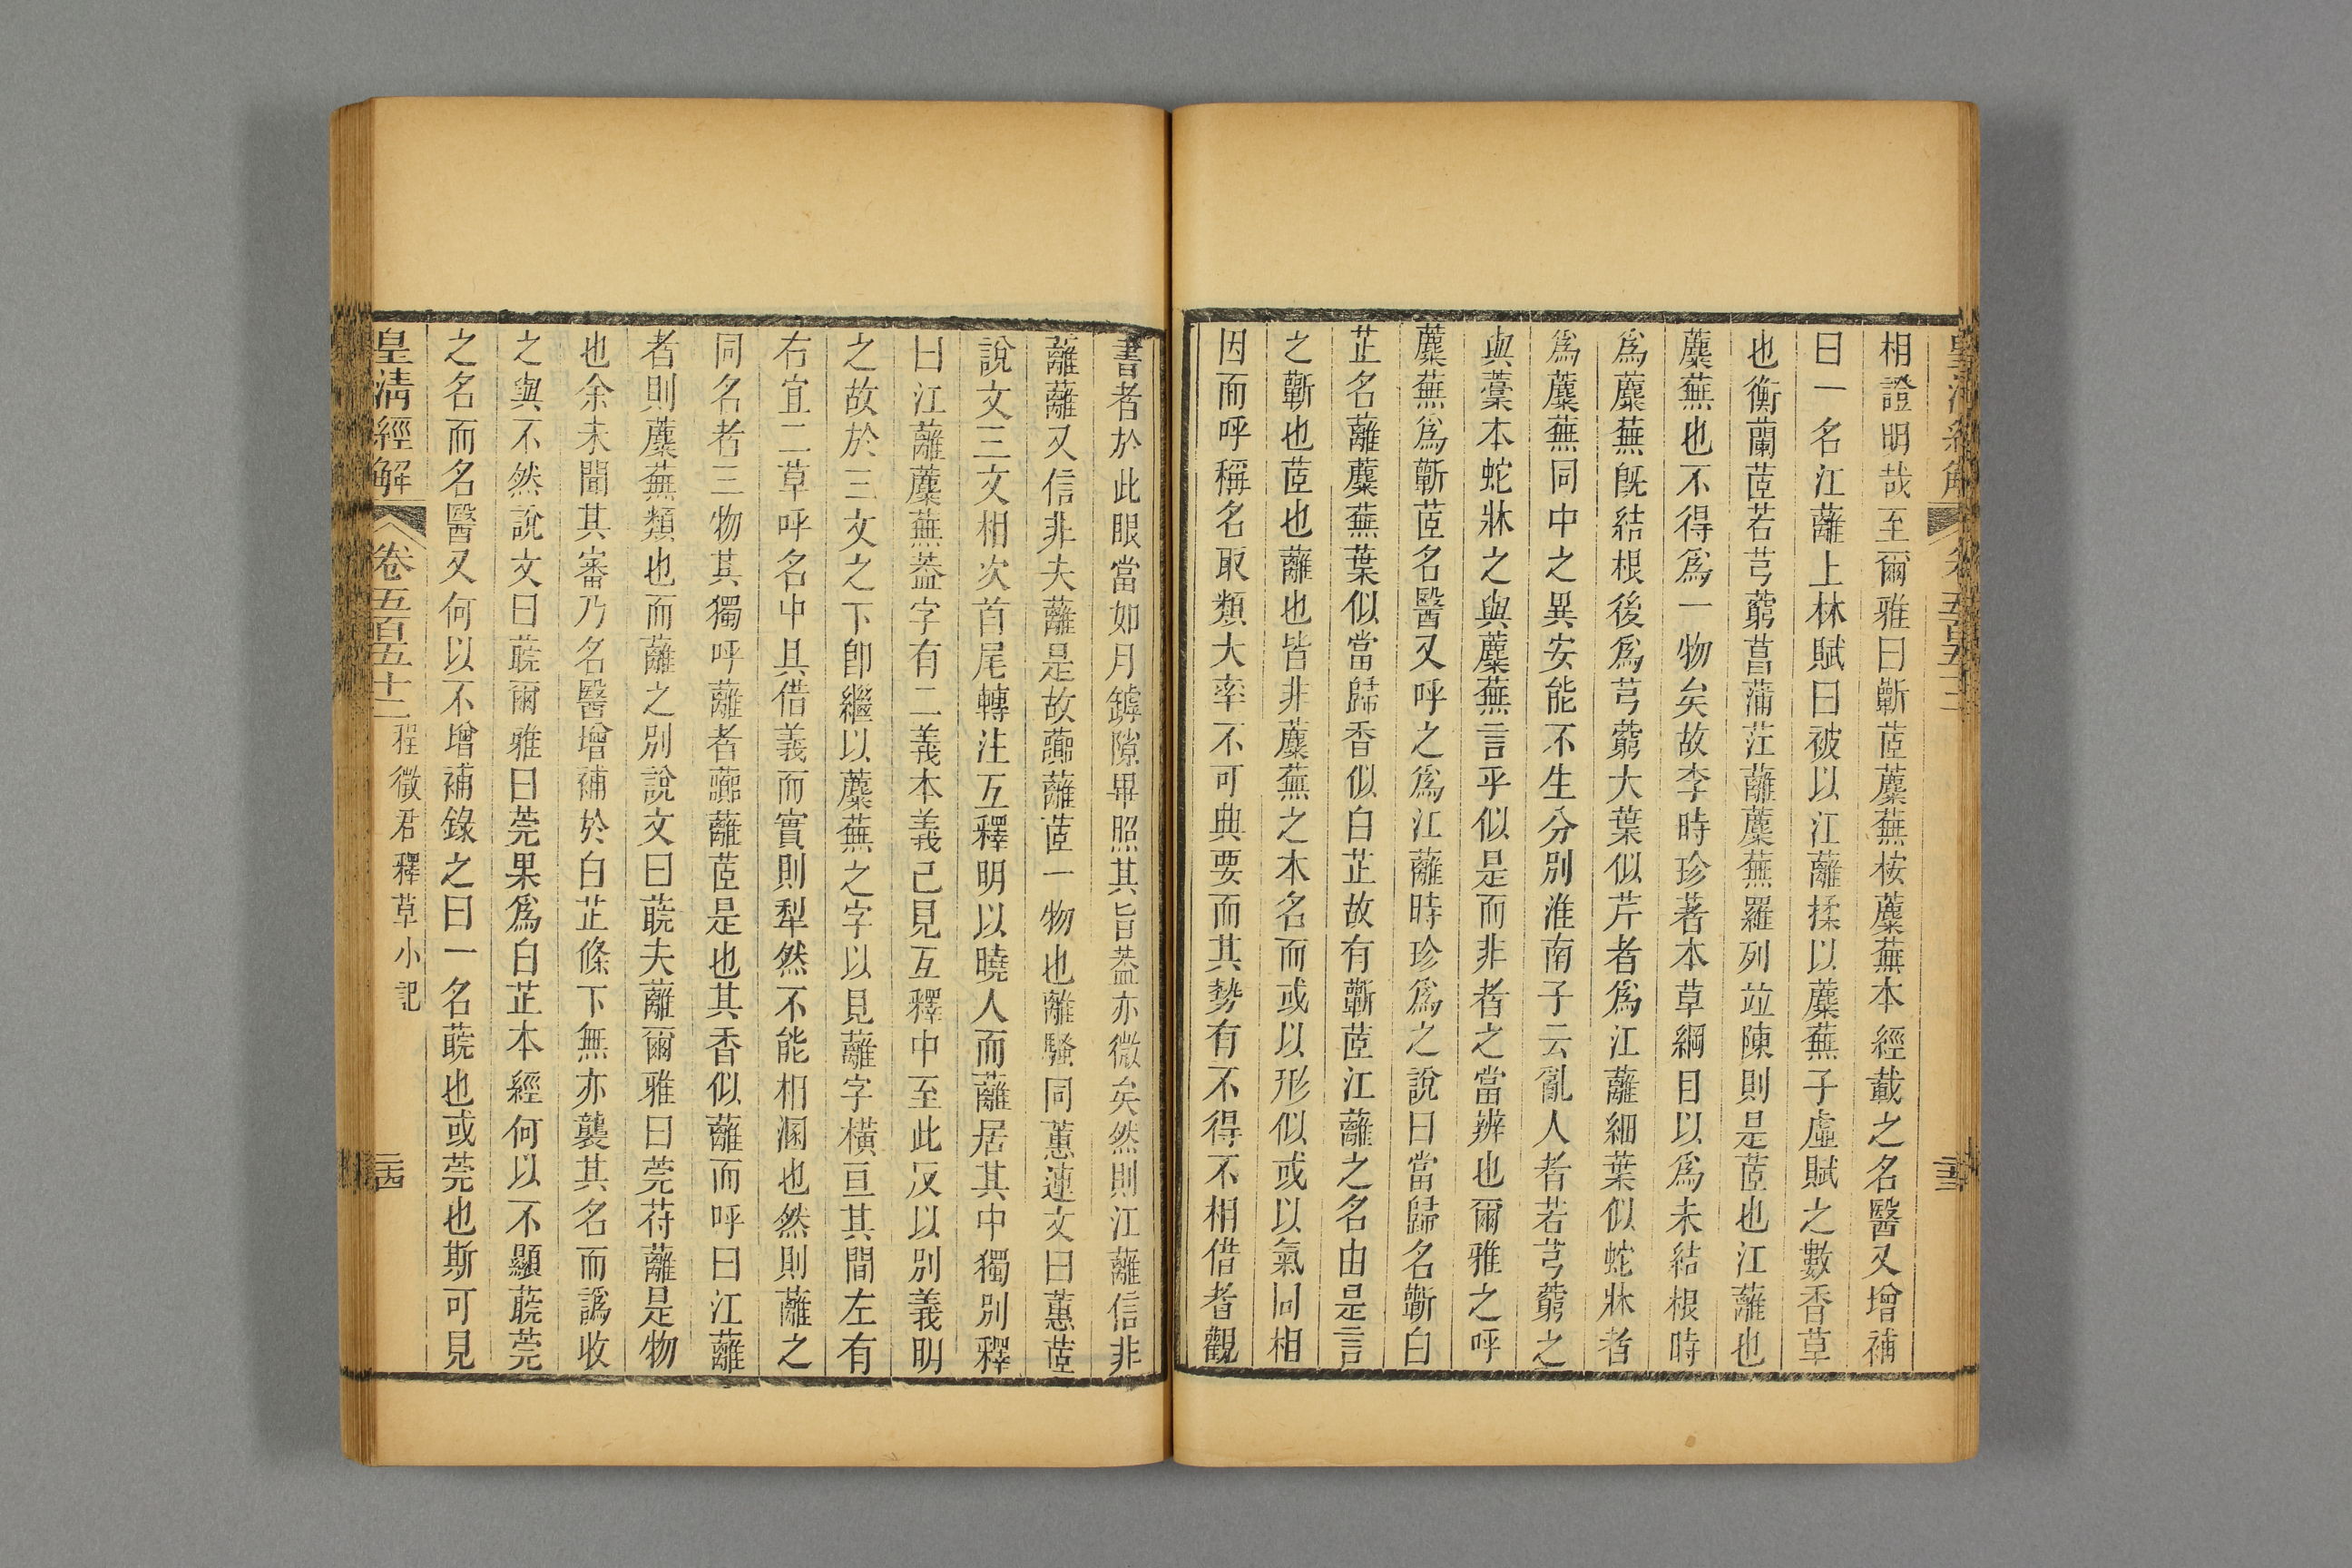 相證明哉至爾雅曰蘄茝蘪蕪桉蘪蕪本經載之名醫又增補
曰一名江蘺上林賦曰被以江蘺揉以蘪蕪子虛賦之數香草
也衡蘭茝若芎藭菖蒲茳蘺蘪蕪羅列竝陳則是茝也江蘺也
蘪蕪也不得爲一物矣故李時珍著本草綱目以爲未結根時
爲蘪蕪旣結根後爲芎藭大葉似芹者爲江蘺細葉似蛇牀者
爲蘪蕪同中之異安能不生分別淮南子云亂人者若芎藭之
與藁本蛇牀之與蘪蕪言乎似是而非者之當辨也爾雅之呼
蘪蕪爲蘄茝名醫又呼之爲江蘺時珍爲之說曰當歸名蘄白
芷名蘺蘪蕪葉似當歸香似白芷故有蘄茝江蘺之名由是言
之蘄也茝也蘺也皆非蘪蕪之本名而或以形似或以氣同相
因而呼稱名取類大率不可典要而其勢有不得不相借者觀
書者於此眼當如月罅隙畢照其旨葢亦微矣然則江蘺信非
蘺蘺又信非夫蘺是故虈蘺茝一物也離騷同蕙連文曰蕙茝
說文三文相次首尾轉注互釋明以曉人而蘺居其中獨別釋
曰江蘺蘪蕪葢字有二義本義已見互釋中至此反以別義明
之故於三文之下卽繼以蘪蕪之字以見蘺字橫亘其間左有
右宜二草呼名中具借義而實則犁然不能相溷也然則蘺之
同名者三物其獨呼蘺者虈蘺茝是也其香似蘺而呼曰江蘺
者則蘪蕪類也而蘺之別說文曰䕀夫蘺爾雅曰莞苻蘺是物
也余未聞其審乃名醫增補於白芷條下無亦襲其名而譌收
之與不然說文曰䕀爾雅曰莞果爲白芷本經何以不顯䕀莞
之名而名醫又何以不增補錄之曰一名䕀也或莞也斯可見
皇淸經解 卷五百五十二 程徵君釋草小記 二十四